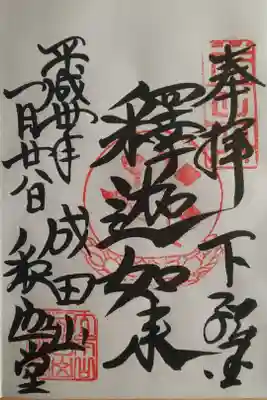 奉拝 下総国
釋迦如来
成田山 釈迦堂
平成卅年
一月廿八日